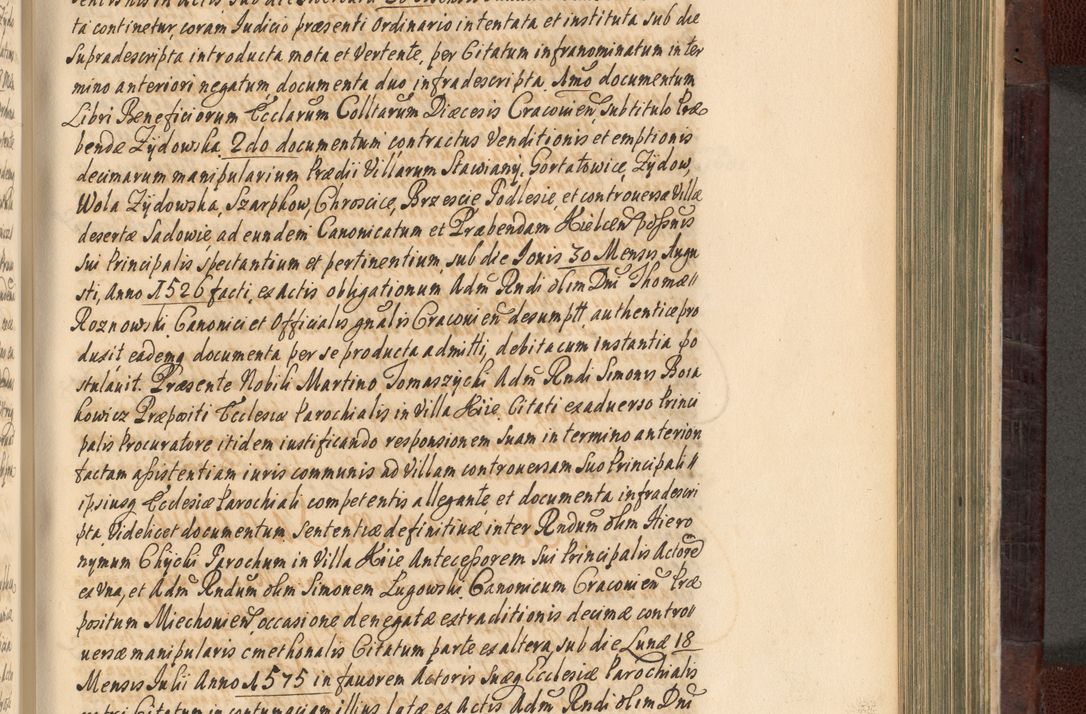 ta continetur, coram Iudicio præsenti Ordinario intentata et instituta sub die
supradescripta introducta mota et Vertente, per Citatum infranominatum in ter
mino anteriori negatum documenta duo infradescripta, Amo documentum
Libri Beneficiorum Ecclarum Colltarum Diæcesis Cracouien, sub titulo Præ
bendæ Zÿdowska. 2do documentum contractus Venditionis et emptionis
decimarum manipularium Prædii Villarum Stawianÿ, Gortatowice, Zÿdow,
Wola Zÿdowska, Szarpkow, Chroscice, Brzescie Podlesie, et controuersæ Villæ
desertæ Sadowie, ad eundem Canonicatum et Præbendam Kielcen poßnus
sui Principalis spectantium et pertinentium, sub die Iouis 30 Mensis Augu
sti, Anno 1526 facti, ex Actis obligationum Adm Rndi olim Dni Thomæ
Roznowski Canonici et Officialis gnalis Cracouien desumptt, authentice pro
duxit eademq documenta per se producta admitti, debita cum instantia po
stulauit. Præsente Nobili Martino Tomaszÿcki Adm Rndi Simonis Bora
kowicz Præpositi Ecclesiæ Parochialis in Villa Kiie Citati ex aduerso Princi
palis Procuratore itidem iustificando responsionem suam in termino anteriori
factam aßistentiam iuris communis ad Villam controuersam Suo Principali
ipsiusq Ecclesiæ Parochiali competentis allegante, et documenta infradescri
pta, Videlicet documentum Sententiæ definitiuæ inter Rndum olim Hiero
nymum Chÿcki Parochum in Villa Kiie Anteceßorem sui Principalis Actorem
ex Vna, et Adm Rndum olim Simonem Ługowski Canonicum Cracouien Præ
positum Miechouien, occasione denegatæ extraditionis decimæ contro
uersæ manipularis cmethonalis Citatum parte ex altera, sub die Lunæ 18
Mensis Iulii Anno 1575 in fauorem Actoris Suæq Ecclesiæ Parochialis
contumaciam illius latæ ex Actis Adm Rndi olim Dni